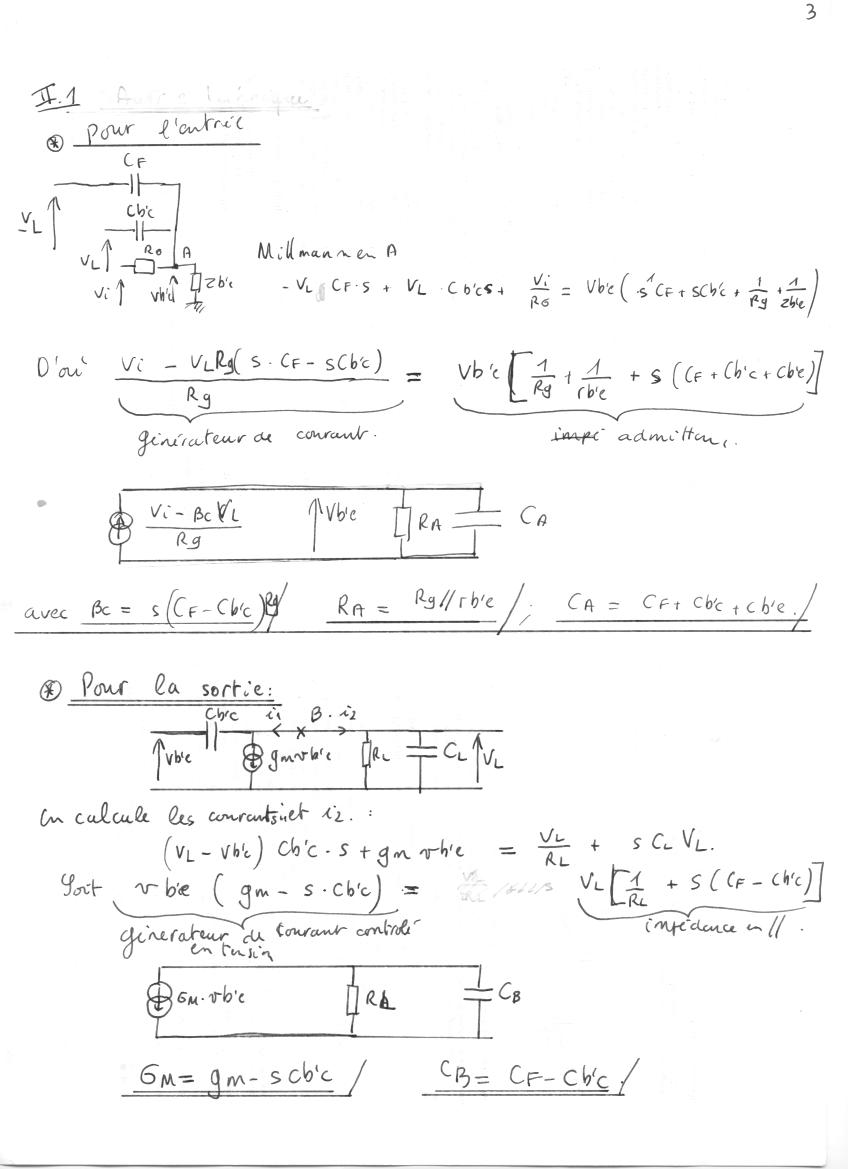 3
II.1
⊛ Pour l'entrée
CF
Cb'c
VL
VL
R0
A
Vi
vb'e
Zb'e
Millmann en A
- VL CF·s + VL · Cb'cs + Vi/RG = Vb'e ( s CF + sCb'c + 1/Rg + 1/Zb'e )
D'où (Vi - VLRg( s · CF - sCb'c))/Rg = Vb'e [ 1/Rg + 1/rb'e + s (CF + Cb'c + Cb'e) ]
générateur de courant.
admittan
(Vi - Bc VL)/Rg
Vb'e
RA
CA
avec Bc = s(CF - Cb'c)Rg / RA = Rg//rb'e / ; CA = CF + Cb'c + Cb'e. /
⊛ Pour la sortie:
Cb'c i1 B · i2
Vb'e
gmvb'e
RL
CL
VL
On calcule les courants i1 et i2. :
(VL - Vb'e) Cb'c · s + gm vb'e = VL/RL + s CL VL.
Soit vb'e ( gm - s · Cb'c ) = VL [ 1/RL + s ( CF - Cb'c ) ]
générateur de courant contrôlé
en tension
impédance en // .
GM · vb'e
RL
CB
GM = gm - s Cb'c /
CB = CF - Cb'c /